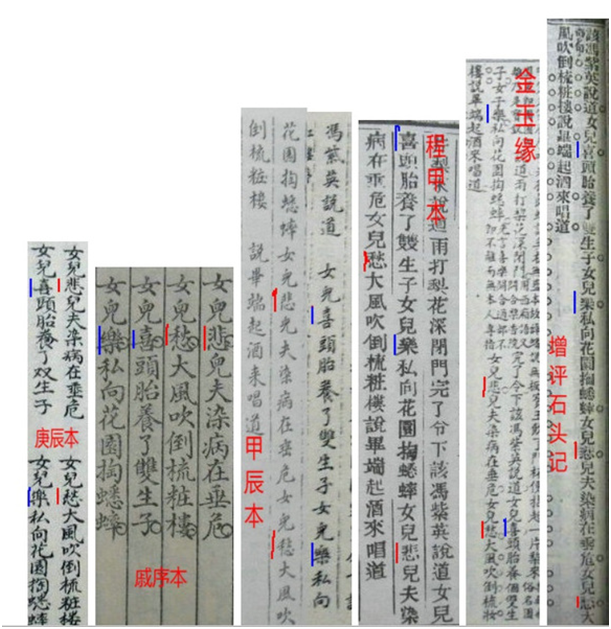 女兒悲兒夫染病在垂危
女兒喜頭胎養了双生子
庚辰本
女兒愁大風吹倒梳粧楼
女兒樂私向花園掏蟋蟀
女兒悲兒夫染病在垂危
女兒愁大風吹倒梳粧樓
女兒喜頭胎養了雙生子
女兒樂私向花園掏蟋蟀
戚序本
馮紫英說道 女兒喜頭胎養了雙生子女兒樂私向
花園掏蟋蟀女兒悲兒夫染病在垂危女兒愁大風吹
倒梳粧樓 說畢端起酒来唱道
甲辰本
程甲本
說道雨打梨花深閉門完了令下該馮紫英說道女兒
喜頭胎養了雙生子女兒樂私向花園掏蟋蟀女兒悲兒夫染
病在垂危女兒愁大風吹倒梳粧樓說畢端起酒來唱道
金玉缘
雨打梨花深閉門 完了令下該馮紫英說道女兒喜頭胎養個雙生
子女兒樂私向花園掏蟋蟀 女兒悲兒夫染病在垂危女兒愁大風吹倒梳妝
樓說畢端起酒來唱道
該馮紫英說道女兒喜頭胎養了雙生子女兒樂私向花園掏蟋蟀女兒悲兒夫染病在垂危女兒愁大
風吹倒梳粧樓說畢端起酒來唱道
增评石头记